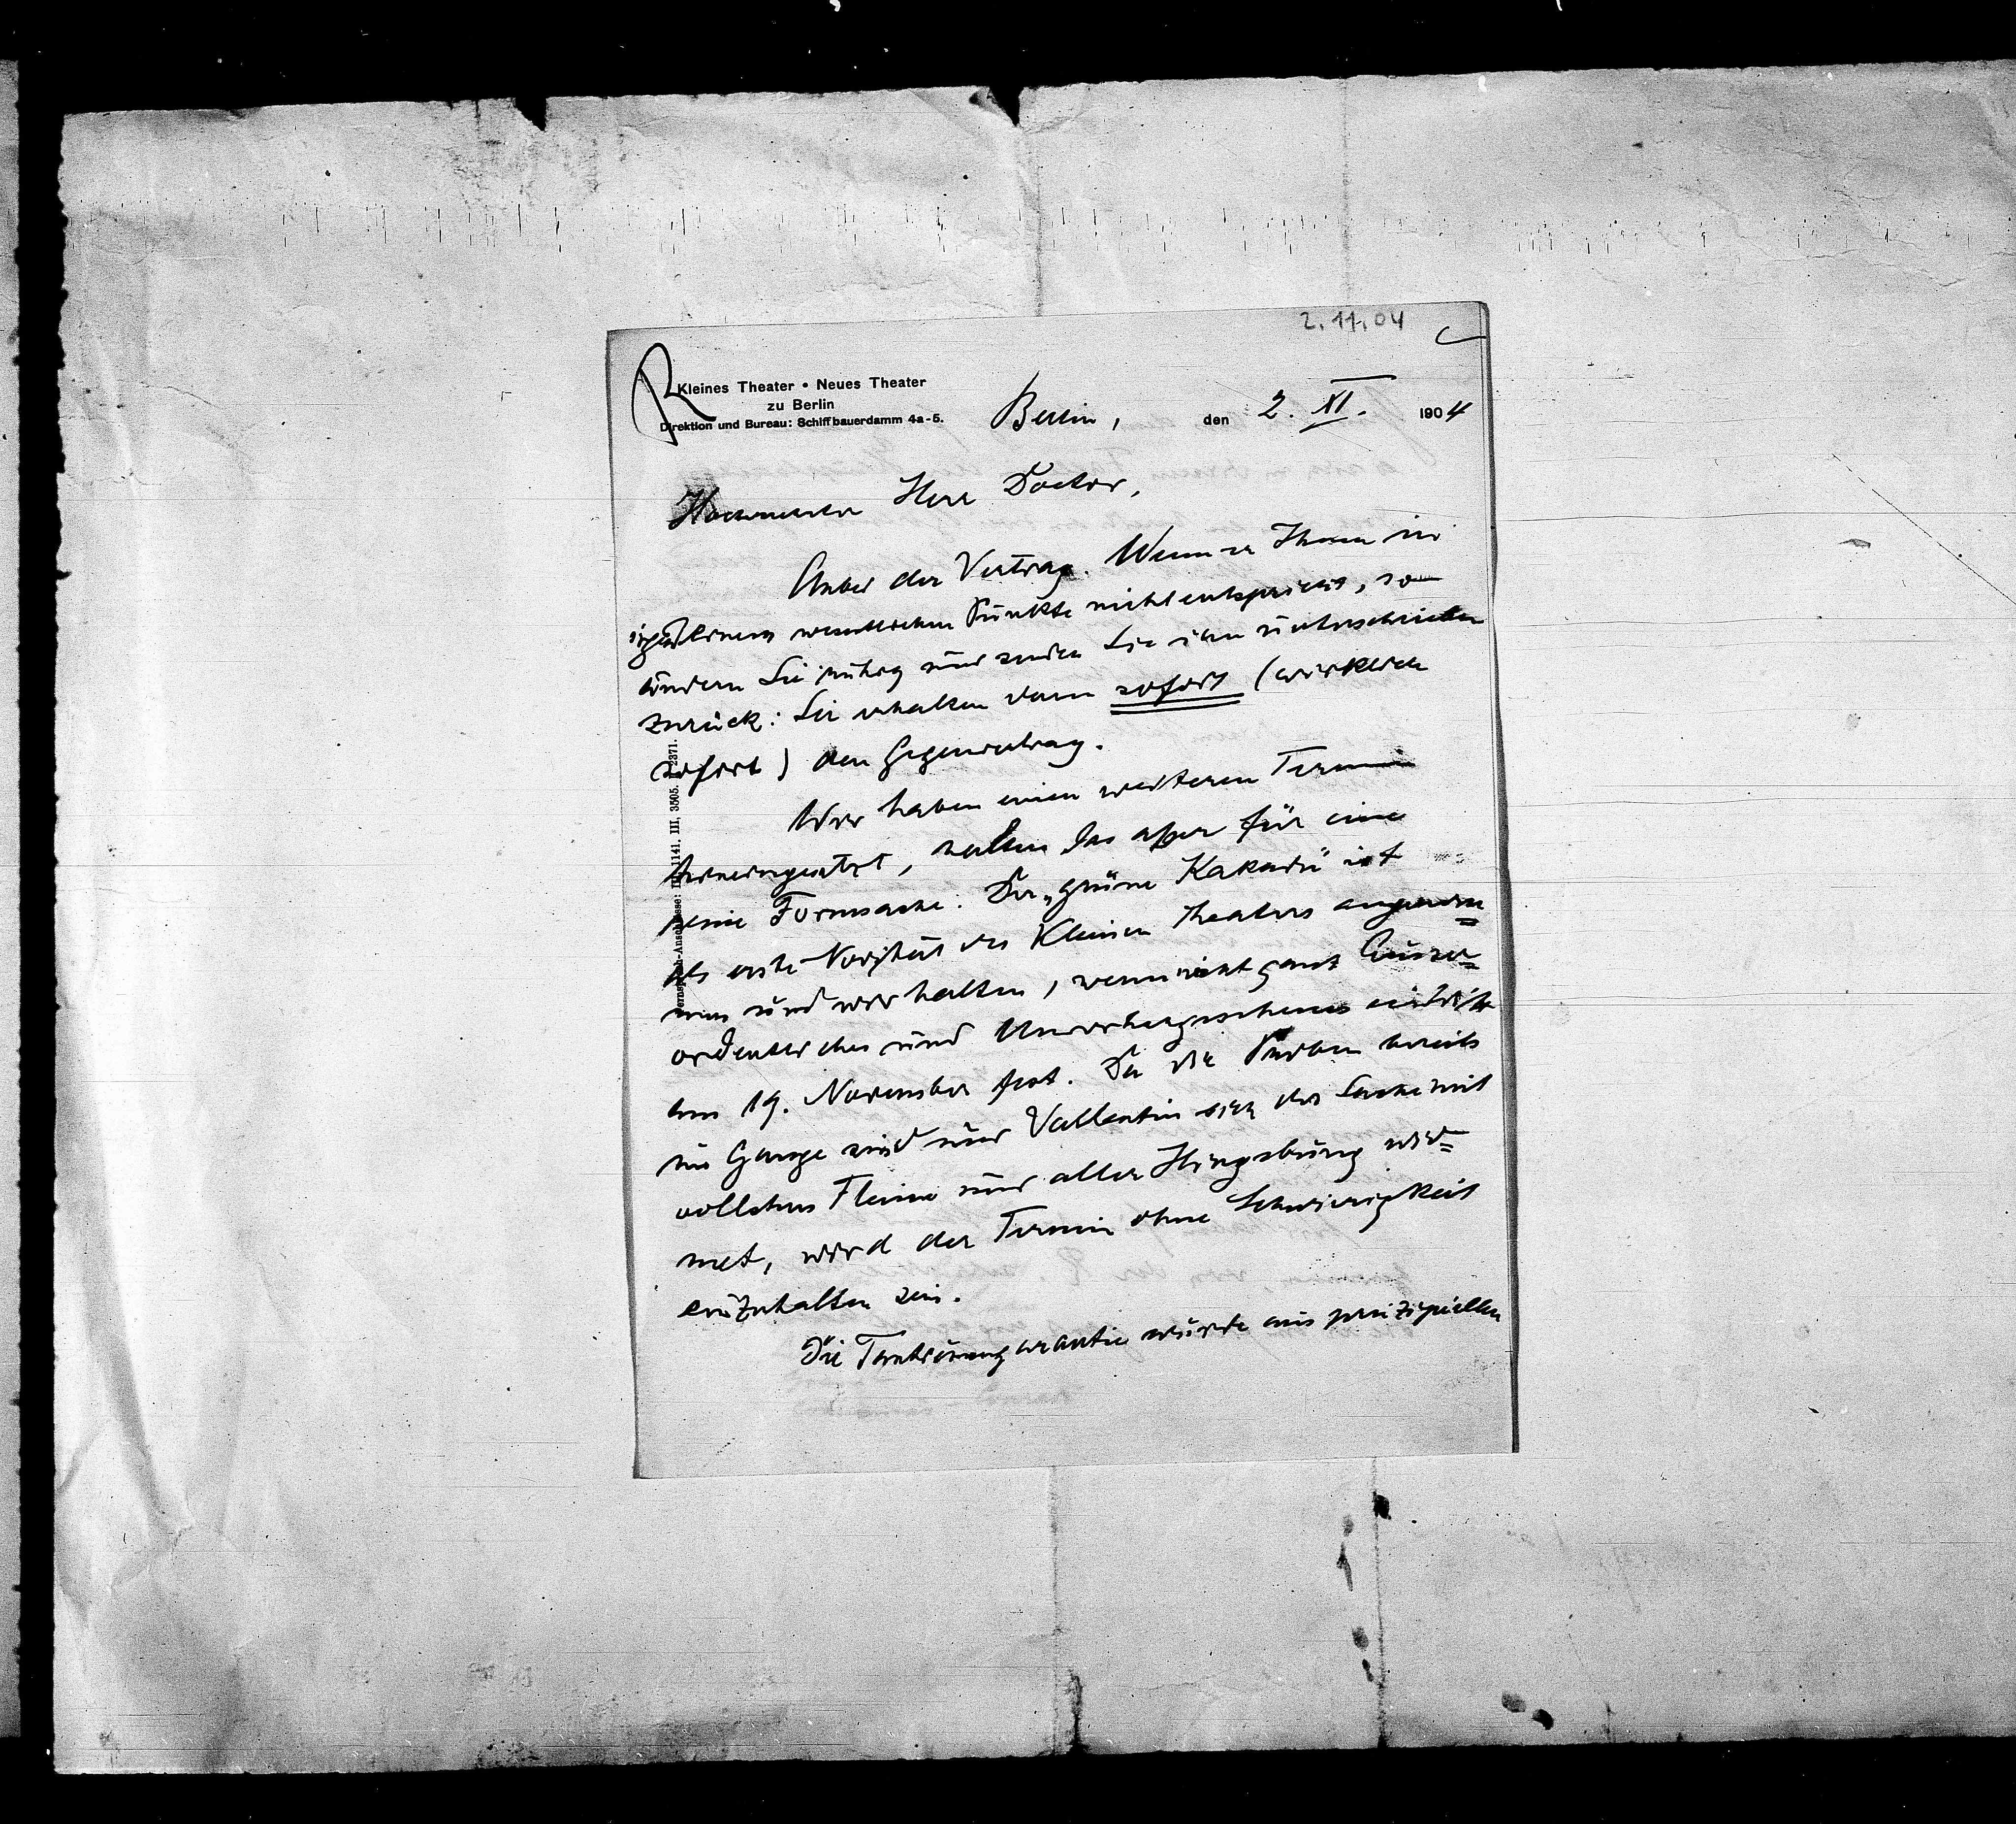 2.11.04
R
Kleines Theater • Neues Theater
zu Berlin
Direktion und Bureau: Schiffbauerdamm 4a-5.
Berlin, den 2. XI. 1904
Herr Doctor,
Anbei der Vertrag. Wenn er Ihnen in
irgendeinem wesentlichen Punkte nicht entspricht, so
ändern Sie ruhig und senden Sie ihn unterschrieben
zurück: Sie erhalten dann sofort (wirklich
sofort) den Gegenvertrag.
Wir haben einen weiteren Termin
hereingesetzt, halten das aber für eine
reine Formsache. Der „grüne Kakadu" ist
als erste Novität des Kleinen Theaters angenom=
men und wir halten, wenn nicht ganz Ausser=
ordentliches und Unvorhergesehenes eintritt
am 19. November fest. Da die Proben bereits
im Gange sind und Vallentin sich der Sache mit
vollstem Fleisse und aller Hingebung wid=
met, wird der Termin ohne Schwierigkeit
einzuhalten sein.
Die würde aus prinzipiellen
III, 3505. 2371.
1141.